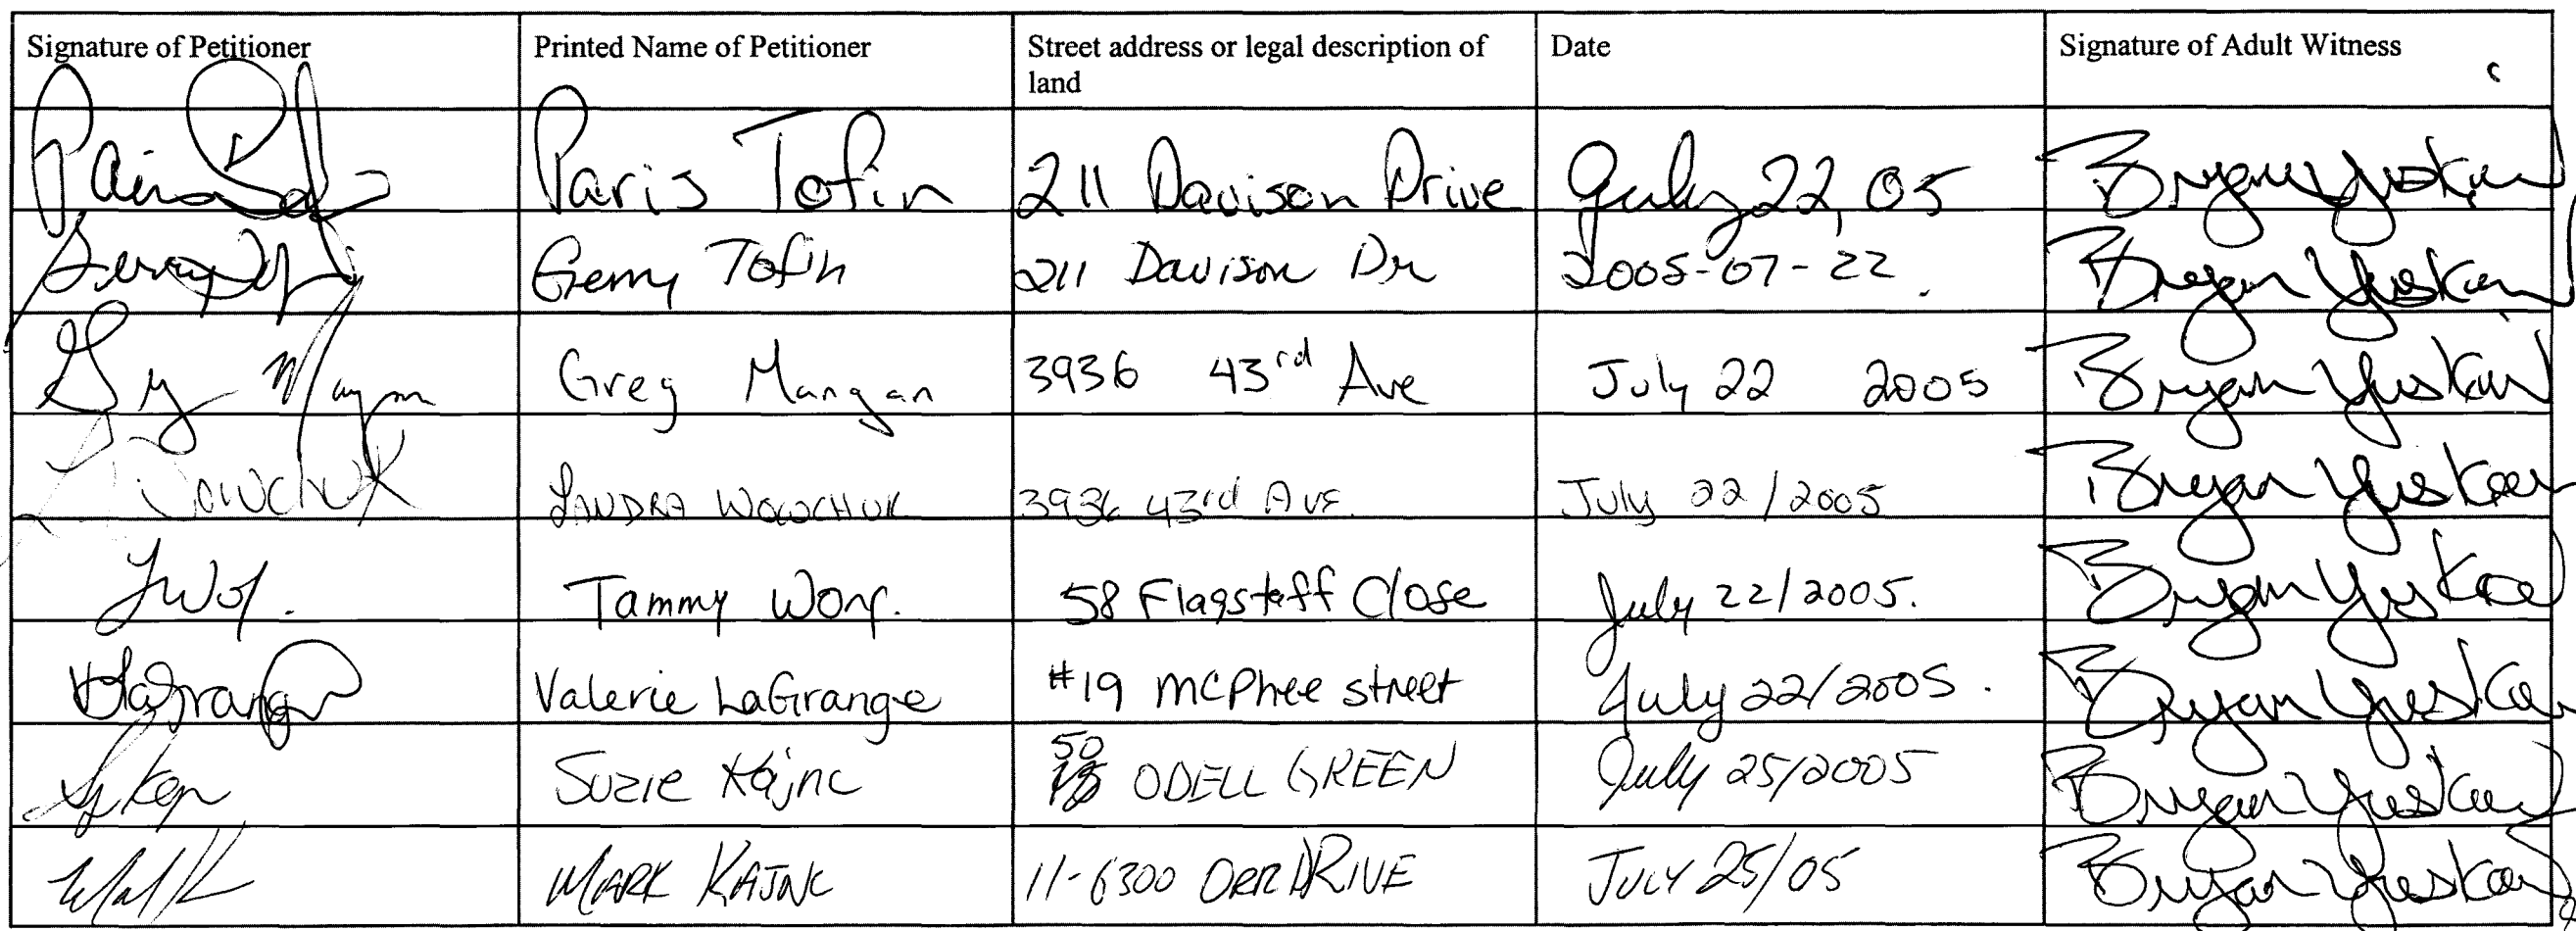 Signature of Petitioner Printed Name of Petitioner Street address or legal description of land Date Signature of Adult Witness
Paris Tofin 211 Davison Drive July 22, 05 Bryan Yuskow
Gerry Tofin 211 Davison Dr 2005-07-22. Bryan
Greg Mangan 3936 43rd Ave July 22 2005 Bryan
Wowchuk SANDRA WOWCHUK 3936 43rd AVE. July 22/2005 Bryan
Tammy Wong. 58 Flagstaff Close July 22/2005. Bryan
VLaGrange Valerie LaGrange #19 McPhee street July 22/2005. Bryan
Suzie Kajnc 50 ODELL GREEN July 25/2005 Bryan
MARK KAJNC 11-6300 ORR DRIVE JULY 25/05 Bryan